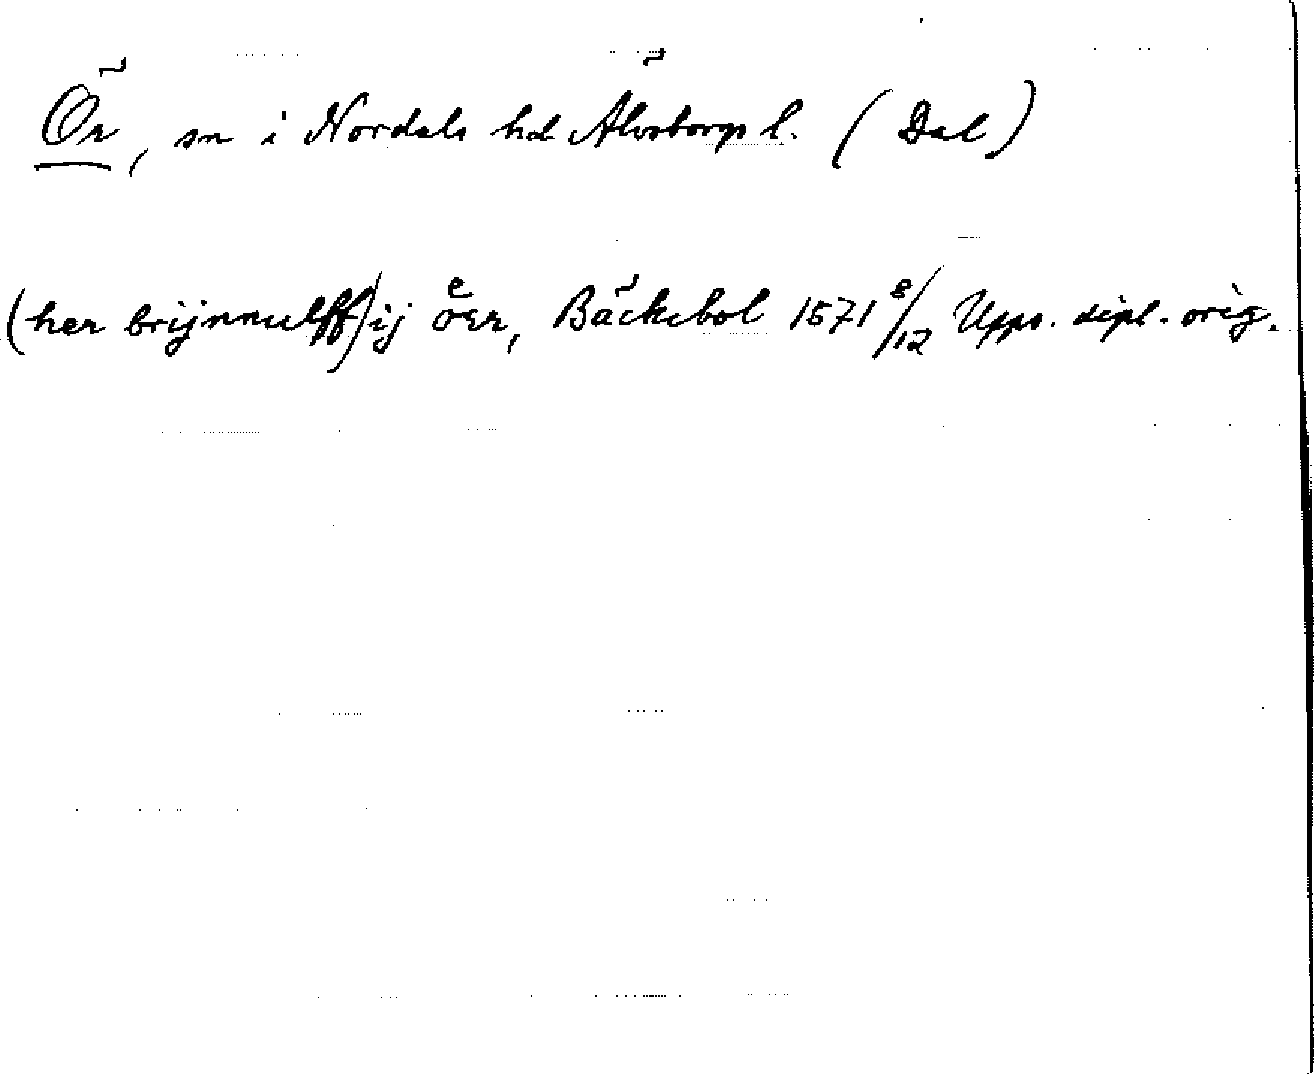 Ör, sn i Nordals hd Älvsborgs l. (Dal)
(her brijnnulff) ij oͤer, Bäckebol 1571 8/12 Upps. dipl. orig.